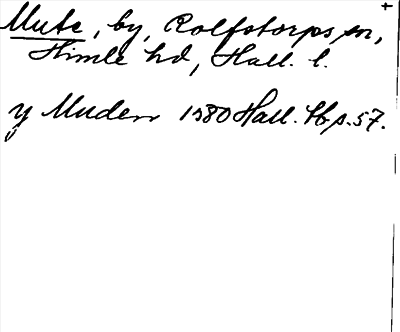 Mute, by, Rolfstorps sn,
Himle hd, Hall. l.
y Muden 1580 Hall. Hb. s. 57.